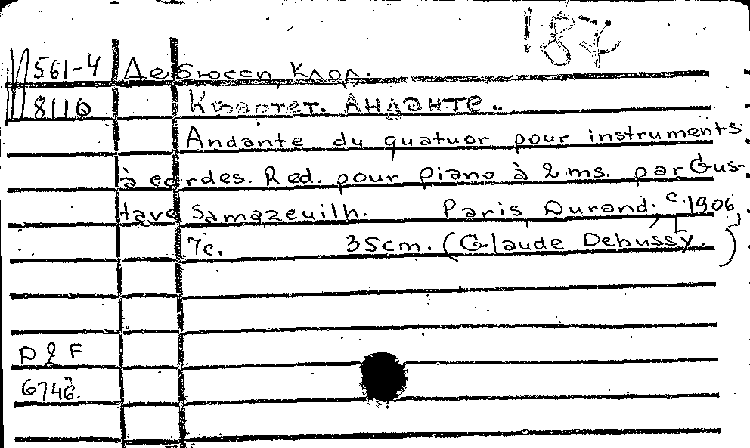 187
П561-4 Дебюсси, Клод.
8110 Квартет. Анданте.
Andante du quatuor pour instruments
à cordes. Red. pour piano à 2 ms. par Gus-
tave Samazeuilh. Paris, Durand, c.1906.
7c. 35cm. (Claude Debussy.)
D & F
6746.